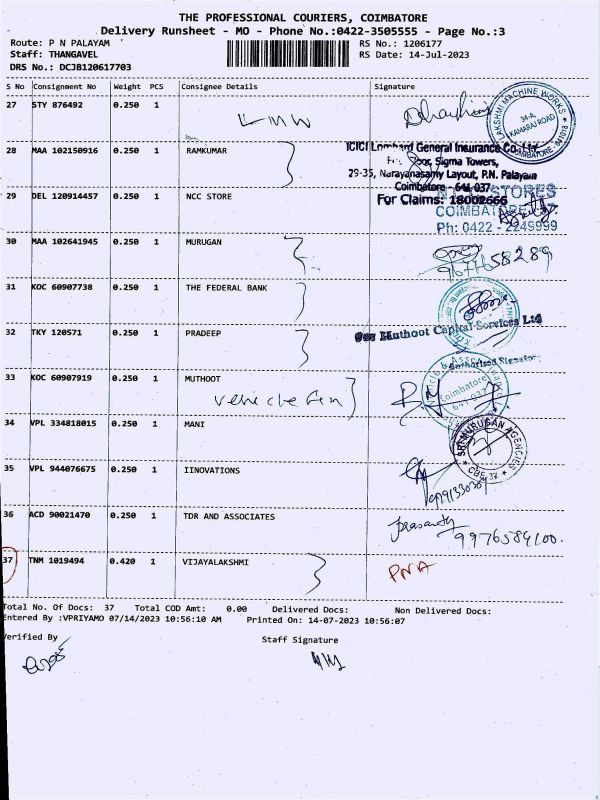 THE PROFESSIONAL COURIERS, COIMBATORE
Delivery Runsheet - MO - Phone No.:0422-3505555 - Page No.:3
Route: P N PALAYAM RS No.: 1206177
Staff: THANGAVEL RS Date: 14-Jul-2023
DRS No.: DCJB120617703
S No Consignment No Weight PCS Consignee Details Signature
27 STY 876492 0.250 1
LMW
LAKSHMI MACHINE WORKS
34-A, KAMARAJ ROAD
28 MAA 102150916 0.250 1 RAMKUMAR
ICICI Lombard General Insurance Co. Ltd
Floor, Sigma Towers,
29-35, Narayanasamy Layout, P.N. Palayam
Coimbatore - 641 037
29 DEL 120914457 0.250 1 NCC STORE
For Claims: 18002666
STORES
COIMBATORE
Ph: 0422 - 2249999
30 MAA 102641945 0.250 1 MURUGAN
31 KOC 60907738 0.250 1 THE FEDERAL BANK
32 TKY 120571 0.250 1 PRADEEP
Muthoot Capital Services Ltd
Authorised Signatory
33 KOC 60907919 0.250 1 MUTHOOT
Coimbatore
641 037
34 VPL 334818015 0.250 1 MANI
SRI MURUGAN AGENCIES
CBE-37
35 VPL 944076675 0.250 1 IINOVATIONS
36 ACD 90021470 0.250 1 TDR AND ASSOCIATES
9976584100.
37 TNM 1019494 0.420 1 VIJAYALAKSHMI
PNA
Total No. Of Docs: 37 Total COD Amt: 0.00 Delivered Docs: Non Delivered Docs:
Entered By :VPRIYAMO 07/14/2023 10:56:10 AM Printed On: 14-07-2023 10:56:07
Verified By Staff Signature